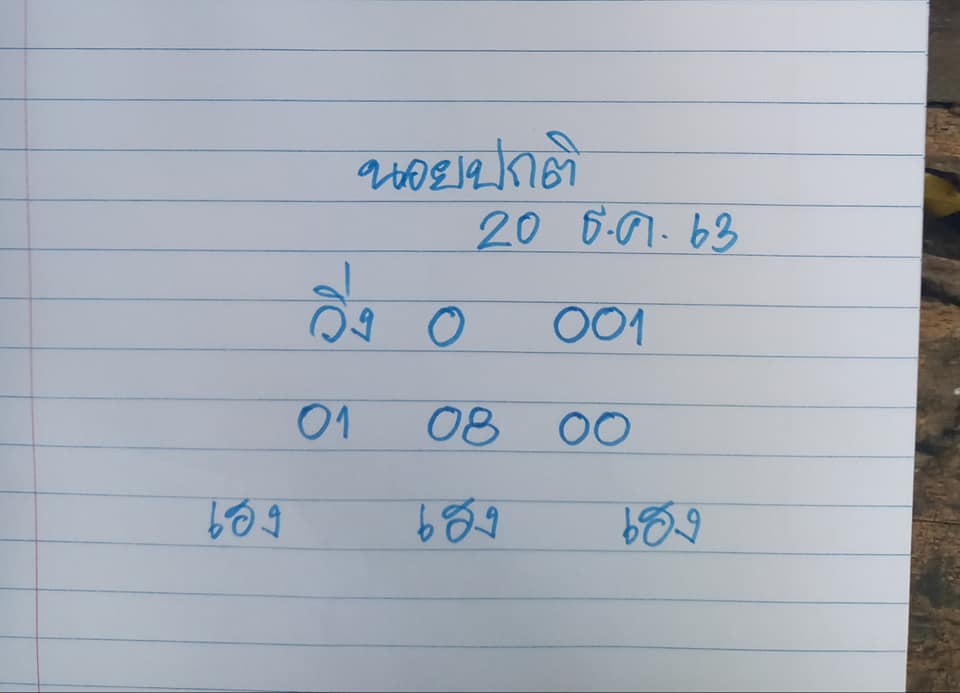 นอยปกติ
20 ธ.ค. 63
วิ่ง 0 001
01 08 00
เฮง เฮง เฮง